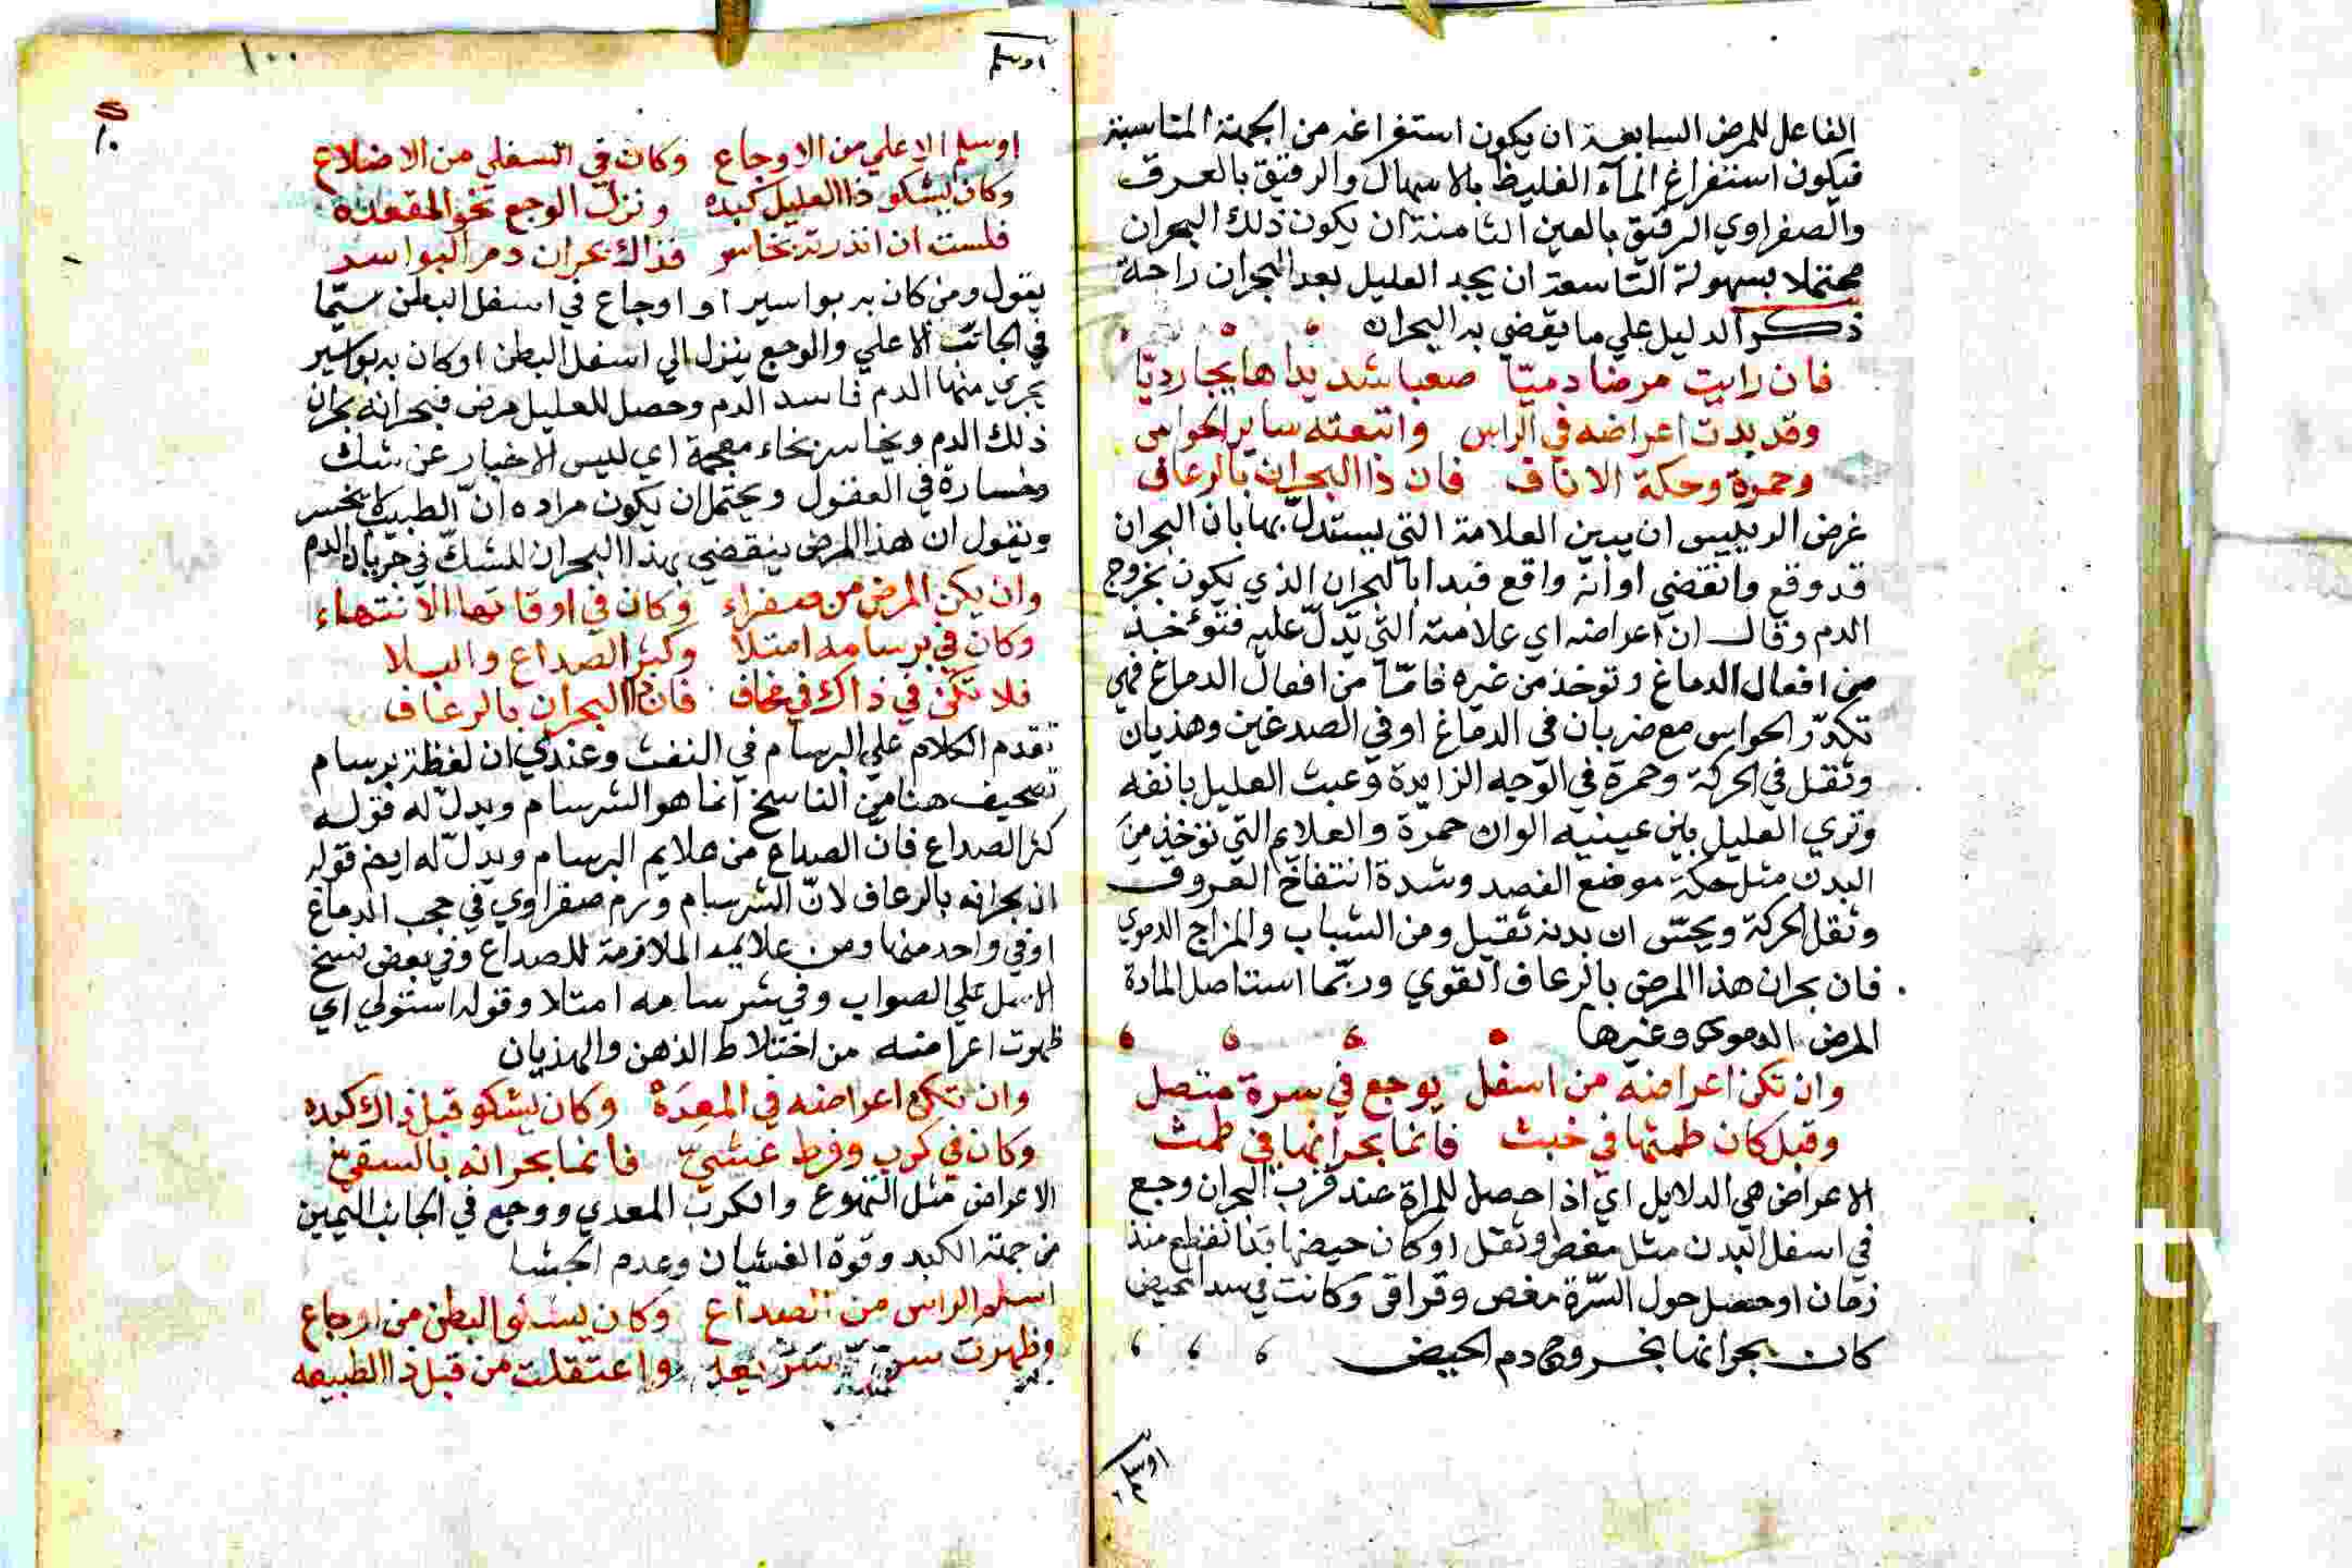 الفاعل للمرض السابعة ان يكون استفراغه من الجهة المناسبة
فيكون استفراغ المآء الغليظ بالاسهال والرقيق بالعرق
والصفراوي الرقيق بالعين الثامنة ان يكون ذلك البحران
محتملا بسهولة التاسعة ان يجد العليل بعد البحران راحة
ذكر الدليل علي ما يقضي به البحران
فان رايت مرضا دميّا صعبا شديدا هايجا رديّا
وقد بدت اعراضه في الراس واتبعته ساير الحواس
وحمرة وحكة الاناف فان ذا البحران بالرعاف
غرض الرييس ان يبين العلامة التي يستدلّ بها بان البحران
قد وقع وانقضي او انه واقع فبدا بالبحران الذي يكون بخروج
الدم وقال ان اعراضه اي علامته التي تدلّ عليه فتوءخذ
من افعال الدماغ وتوخذ من غيره فامّا من افعال الدماغ فهي
تكدّر الحواس مع ضربان في الدماغ او في الصدغين وهذيان
وثقل في الحركة وحمرة في الوجه الزايدة وعبث العليل بانفه
وتري العليل بين عينيه الوان حمرة والعلايم التي توخذ من
البدن مثل حكة موضع الفصد وشدة انتفاخ العروق
وثقل الحركة ويحسّ ان بدنه ثقيل ومن الشباب والمزاج الدموي
فان بحران هذا المرض بالرعاف القوي وربّما استاصل المادة
المرض الدموي وغيرها
وان تكن اعراضه من اسفل يوجع في سرة متصل
وقبل كان طمثها في خبث فانما بحرانها في طمث
الاعراض هي الدلايل اي اذا حصل للمراة عند قرب البحران وجع
في اسفل البدن مثل مغص وثقل او كان حيضها قد انقطع منذ
زمان او حصل حول السّرة مغص وقراقر وكانت في الحيض
كان بحرانها بخروج دم الحيض
اوسلم
١٠٠
اوسلم
١٠
اوسلم الاعلي من الاوجاع وكان في السفلي من الاضلاع
وكان يشكو ذا العليل كبده ونزل الوجع نحو المقعده
فلست ان انذرته بخاسر فذاك بحران دم البواسر
يقول ومن كان به بواسير او اوجاع في اسفل البطن سيّما
في الجانب الاعلي والوجع ينزل الي اسفل البطن او كان به بواسير
يجري منها الدم فاسد الدم وحصل للعليل مرض فبحرانه بحران
ذلك الدم وبخاسر بخاء معجمة اي ليس الاخبار عن شك
وخسارة في العقول ويحتمل ان يكون مراده انّ الطبيب لا يخسر
ويقول ان هذا المرض ينقضي بهذا البحران للشكّ في جريان الدم
وان يكن المرض من صفراء وكان في اوقاتها الانتهاء
وكان في برسامه امتلا وكثر الصداع والبلا
فلا تكن في ذاك في خاف فان ذا البحران بالرعاف
تقدم الكلام علي البرسام في النفث وعندي ان لفظة برسام
تصحيف هنا من الناسخ انما هو الشرسام ويدلّ له قوله
كثر الصداع فانّ الصداع من علايم البرسام ويدلّ له ايضا قوله
ان بحرانه بالرعاف لانّ الشرسام ورم صفراوي في حجب الدماغ
او في واحد منها ومن علايمه الملازمة للصداع وفي بعض نسخ
الاصل علي الصواب وفي شرسامه امتلا وقوله استولي اي
ظهرت اعراضه من اختلاط الذهن والهذيان
وان تكن اعراضه في المعِدَة وكان يشكو قبل ذاك كبده
وكان في كرب وفرط غشيّ فانما بحرانه بالقيّ
الاعراض مثل التهوع والكرب المعدي ووجع في الجانب اليمين
من جهة الكبد وقوة الغشيان وعدم الجشا
اسلم الراس من الصداع وكان يشكو البطن من اوجاع
وظهرت سريعه واعتقلت من قبل ذا الطبيعه